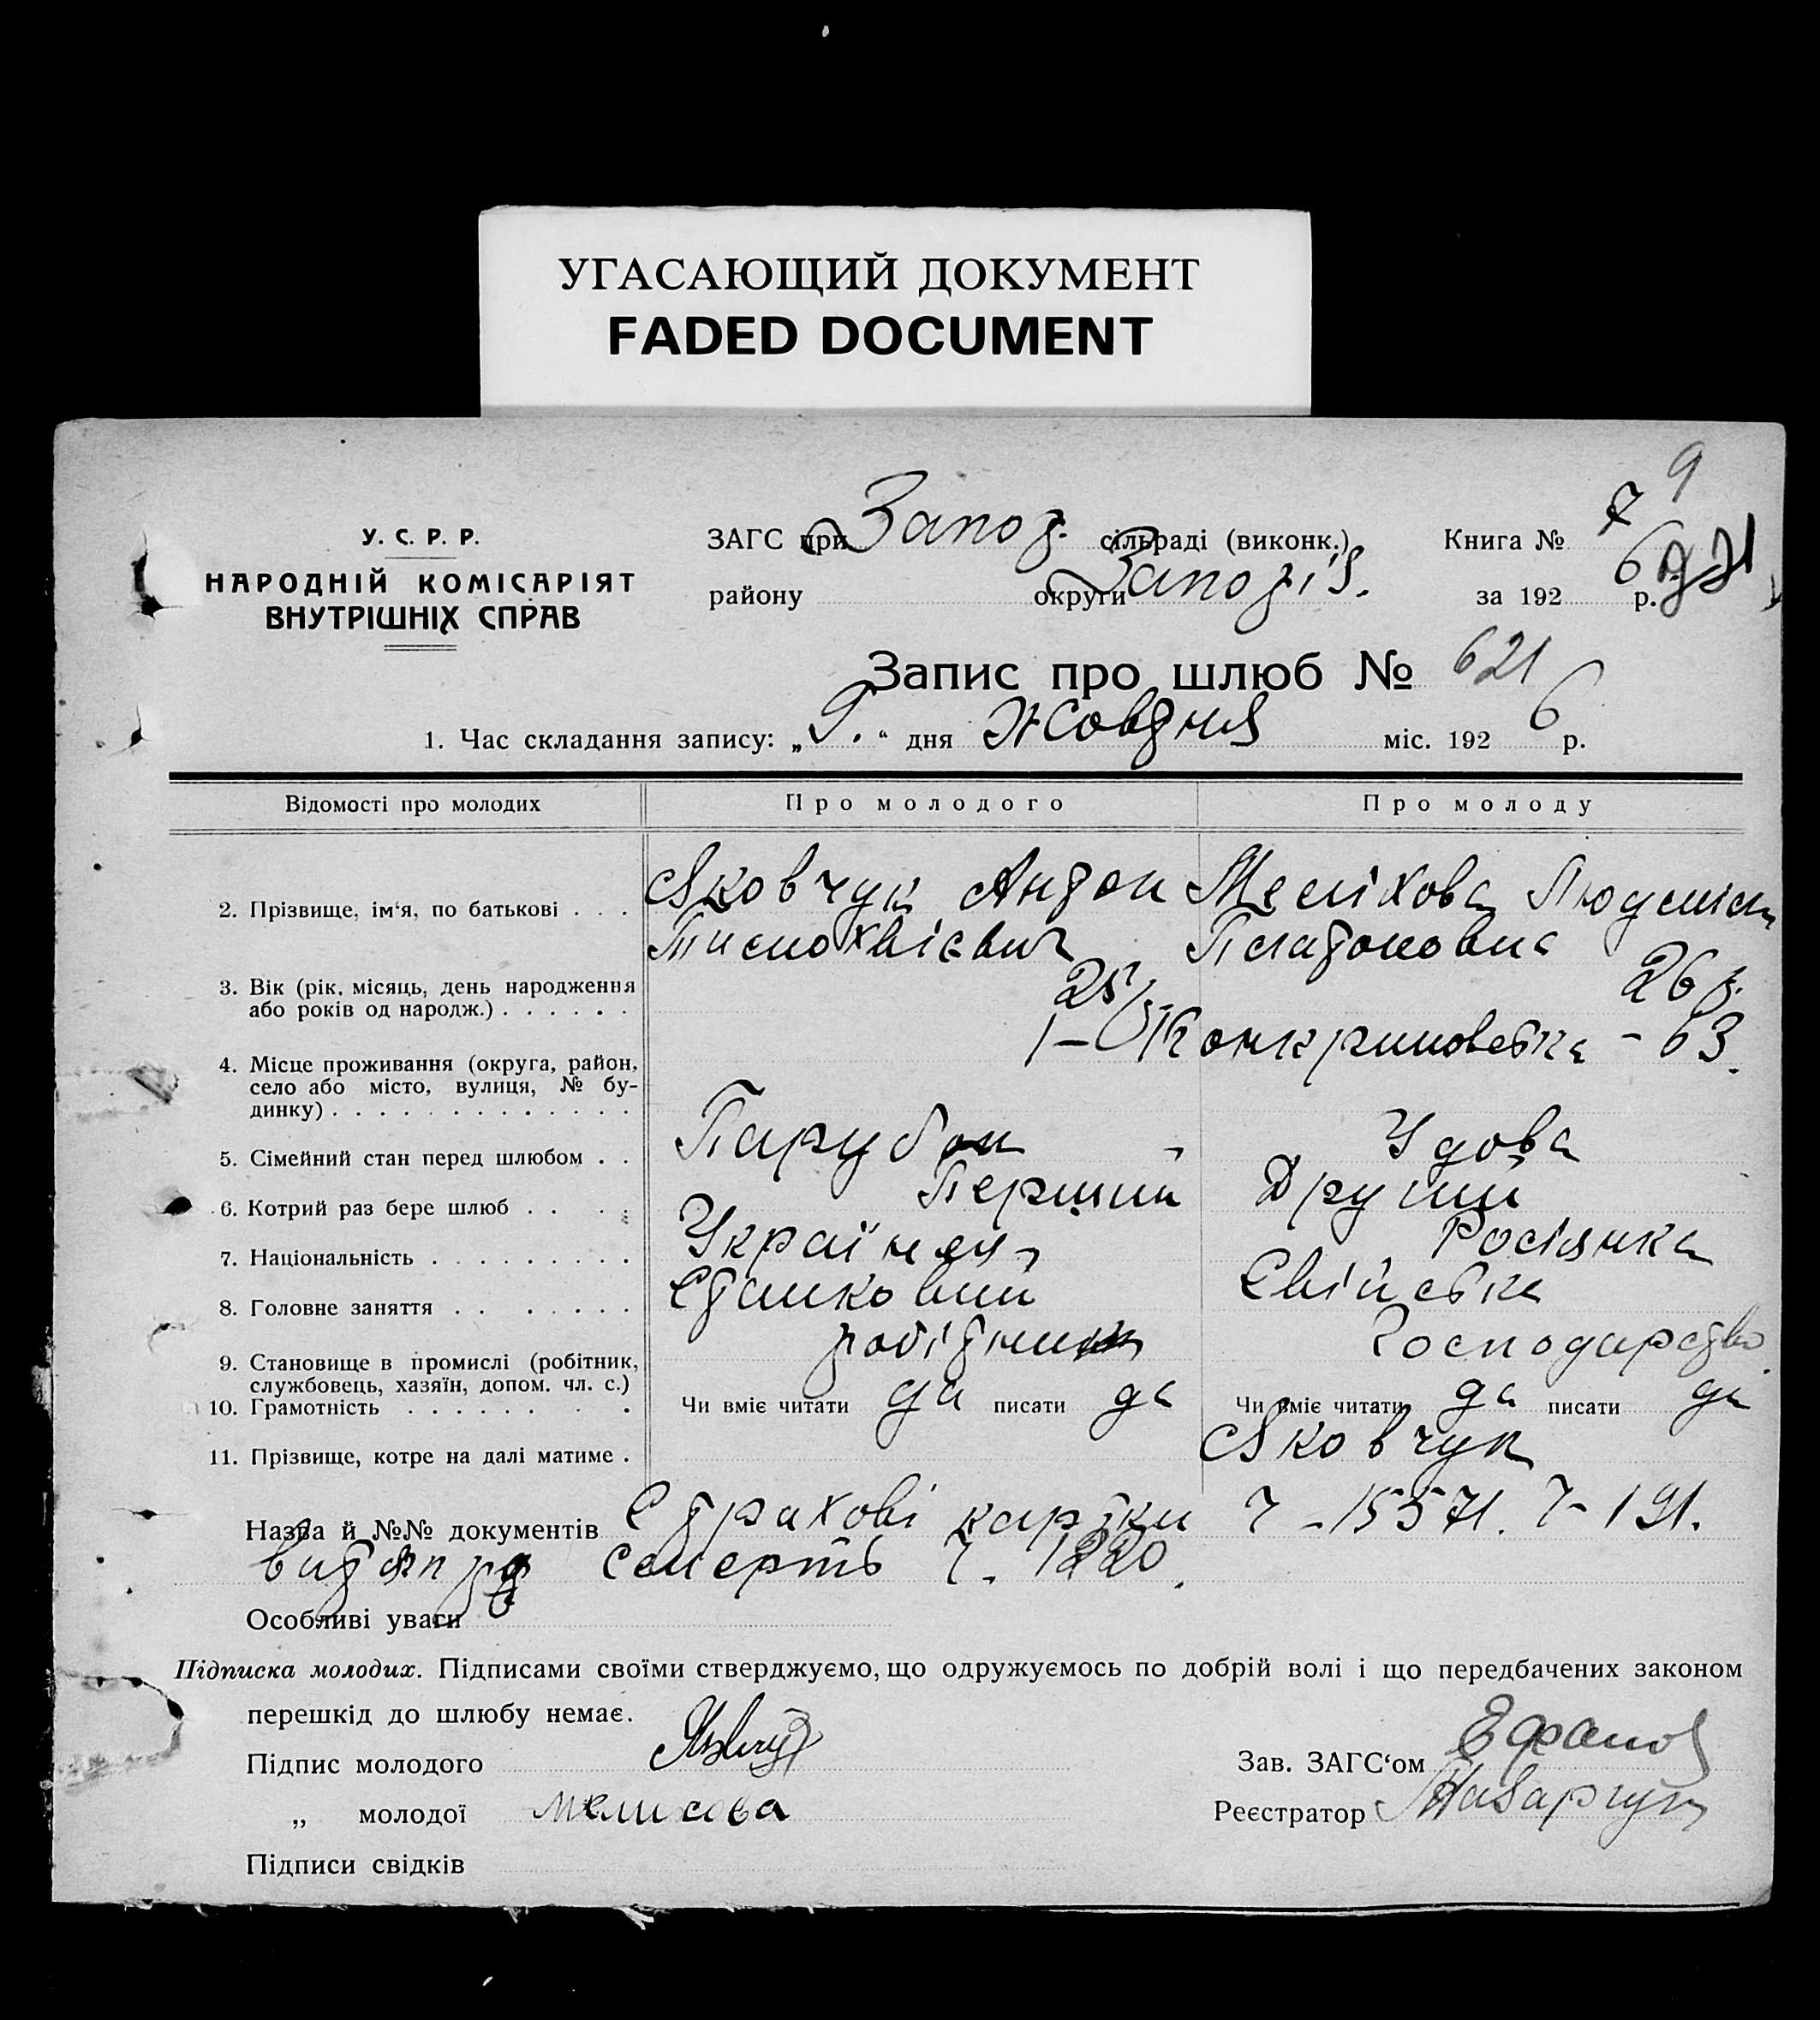 УГАСАЮЩИЙ ДОКУМЕНТ
FADED DOCUMENT
9
У. С. Р. Р.
НАРОДНІЙ КОМІСАРІЯТ
ВНУТРІШНІХ СПРАВ
ЗАГС при Запоз. сільраді (виконк.) Книга № 7
району округи Запоріз. за 192 6 р.
Запис про шлюб № 621
1. Час складання запису: „ “ дня Жовтня міс. 192 6 р.
Відомості про молодих Про молодого Про молоду
2. Прізвище, ім‘я, по батькові . . . Яковчук Антон Меліхова Людміла
Тимохвієвич Платоновна
3. Вік (рік, місяць, день народження або років од народж.) . . . . . . 25 26 р.
4. Місце проживання (округа, район, село або місто, вулиця, № будинку) . . . . . . . . . . . . . – 63.
5. Сімейний стан перед шлюбом . . Парубок Удова
6. Котрий раз бере шлюб . . . . Перший Другий
7. Національність . . . . . . . . . Українець Росіянка
8. Головне заняття . . . . . . . Станковий Свійське
робітник Господарство
9. Становище в промислі (робітник, службовець, хазяїн, допом. чл. с.)
10. Грамотність . . . . . . . . Чи вміє читати да писати да Чи вміє читати да писати да
11. Прізвище, котре на далі матиме . Яковчук
Назва й №№ документів Страхові картки Ч – 15571. Ч – 191.
смерть Ч. 1220.
Особливі уваги
Підписка молодих. Підписами своїми стверджуємо, що одружуємось по добрій волі і що передбачених законом
перешкід до шлюбу немає.
Підпис молодого Зав. ЗАГС‘ом
„ молодої Мелихова Реєстратор
Підписи свідків